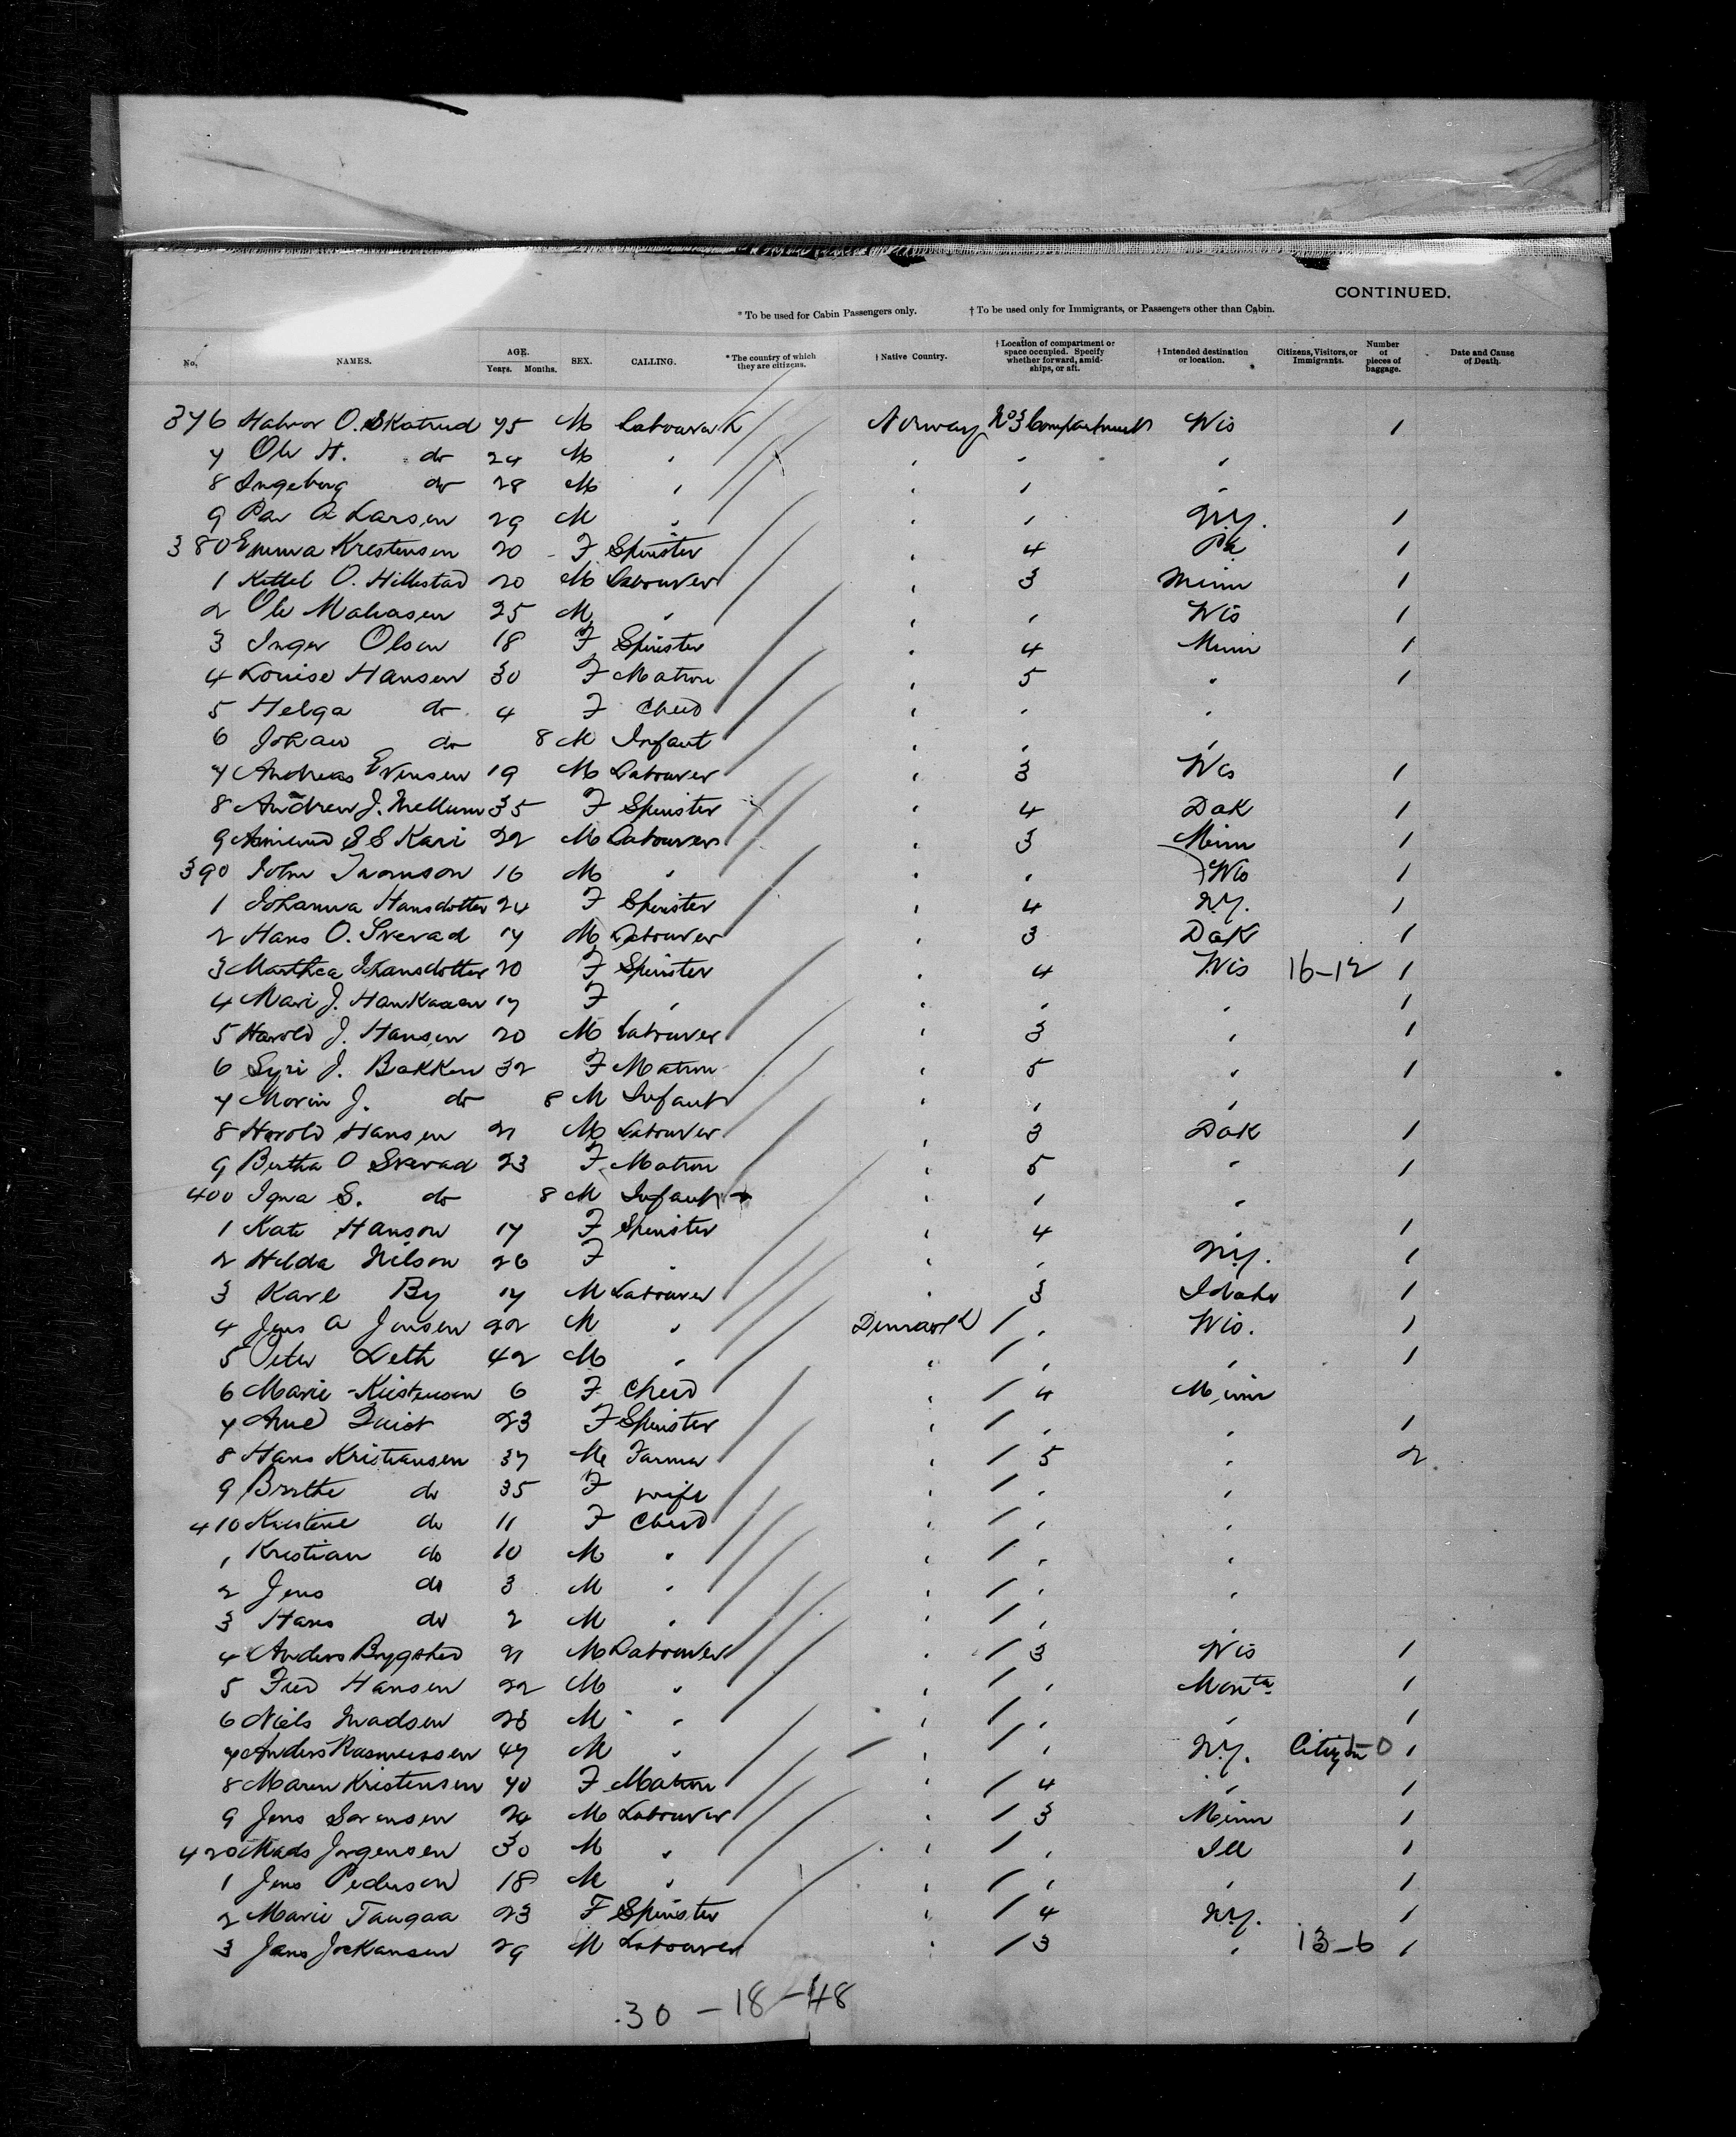 CONTINUED.
* To be used for Cabin Passengers only. † To be used only for Immigrants, or Passengers other than Cabin.
No. NAMES. AGE. Years. Months. SEX. CALLING. * The country of which they are citizens. † Native Country. † Location of compartment or space occupied. Specify whether forward, amidships, or aft. † Intended destination or location. Citizens, Visitors, or Immigrants. Number of pieces of baggage. Date and Cause of Death.
376 Halvor O. Skatrud 75 M Labourer Norway No 3 Compartment Wis 1
7 Ole H. do 24 M " " " "
8 Ingeborg do 28 M " " " "
9 A Larsen 29 M " " " N.Y. 1
380 Emma Krestensen 20 F Spinster " 4 Pa 1
1 Kittel O. Hillestad 20 M Labourer " 3 Minn 1
2 Ole 25 M " " " Wis 1
3 Inger Olsen 18 F Spinster " 4 Minn 1
4 Louise Hansen 30 F Matron " 5 " 1
5 Helga do 4 F Child " " "
6 Johan do 8 M Infant " " "
7 Andreas Evensen 19 M Labourer " 3 Wis 1
8 Andrew J. Mellum 35 F Spinster " 4 Dak 1
9 S S Kari 22 M Labourer " 3 Minn 1
390 John 16 M " " " Wis 1
1 Johanna Hansdotter 24 F Spinster " 4 N.Y. 1
2 Hans O. Sverad 17 M Labourer " 3 Dak 1
3 Marthea Johansdotter 20 F Spinster " 4 Wis 16-12 1
4 Mari J. 17 F " " " " 1
5 Harold J. Hansen 20 M Labourer " 3 " 1
6 Syri J. Bakken 32 F Matron " 5 " 1
7 J. do 8 M Infant " " "
8 Harold Hansen 21 M Labourer " 3 Dak 1
9 Bertha O Sverad 23 F Matron " 5 " 1
400 S. do 8 M Infant " " "
1 Kate Hanson 17 F Spinster " 4 " 1
2 Hilda Nilson 26 F " " " N.Y. 1
3 Karl By 17 M Labourer " 3 Idaho 1
4 Jens A Jensen 22 M " Denmark / " Wis. 1
5 Peter Leth 42 M " " / " " 1
6 Marie Kristensen 6 F Child " / 4 Minn
7 Ane Quist 23 F Spinster " / " " 1
8 Hans Kristiansen 37 M Farmer " / 5 " 2
9 Birthe do 35 F wife " / " "
410 Kristine do 11 F Child " / " "
1 Kristian do 10 M " " / " "
2 Jens do 3 M " " / " "
3 Hans do 2 M " " / " "
4 Anders Brygsted 21 M Labourer " / 3 Wis 1
5 Fred Hansen 22 M " " / " Monta 1
6 Niels Madsen 28 M " " / " " 1
7 Anders Rasmussen 47 M " " / " N.Y. Citizen 0 1
8 Maren Kristensen 40 F Matron " / 4 " 1
9 Jens Sorensen 24 M Labourer " / 3 Minn 1
420 Mads Jorgensen 30 M " " / " Ill 1
1 Jens Pederson 18 M " " / " " 1
2 Marie Taugaa 23 F Spinster " / 4 N.Y. 1
3 Jans 29 M Labourer " / 3 " 13-6 1
30 - 18 - 48